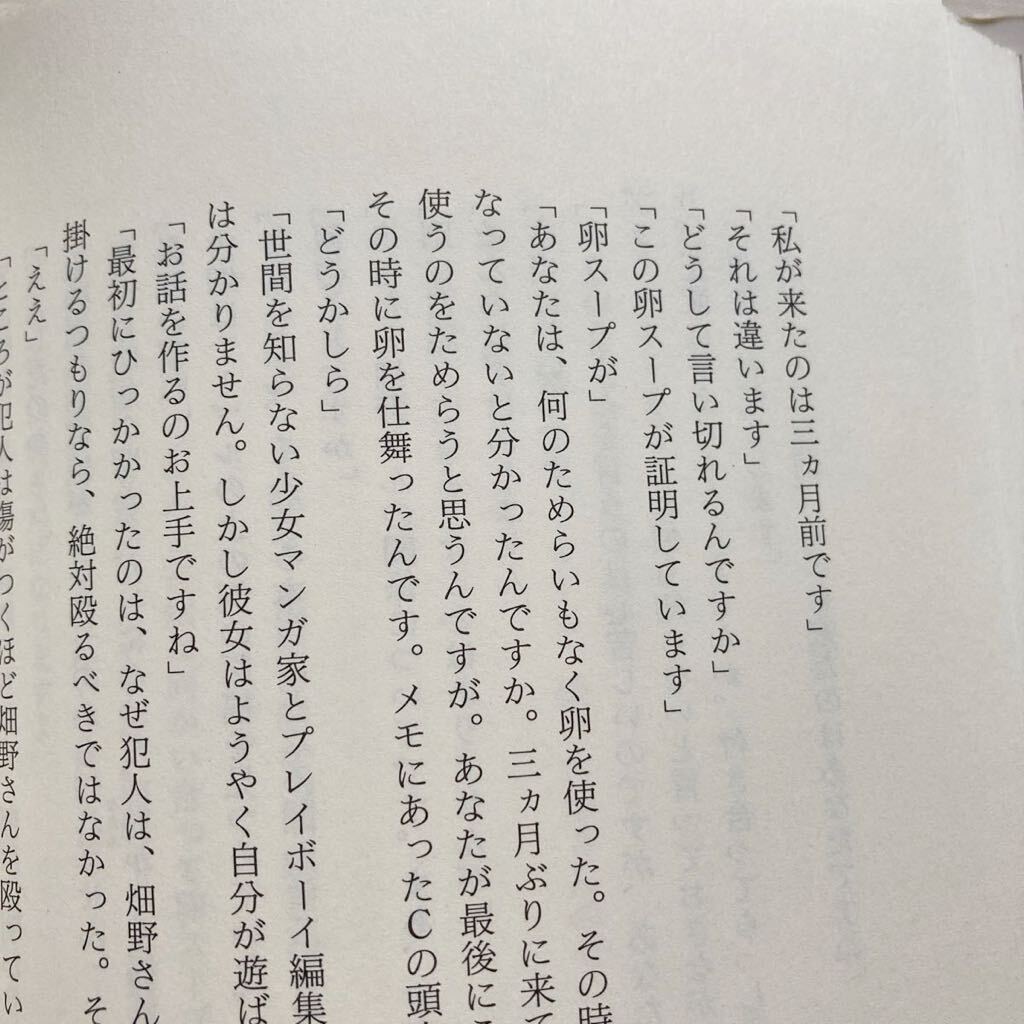 「私が来たのは三ヵ月前です」
「それは違います」
「どうして言い切れるんですか」
「この卵スープが証明しています」
「卵スープが」
「あなたは、何のためらいもなく卵を使った。その時
なっていないと分かったんですか。三ヵ月ぶりに来て
使うのをためらうと思うんですが。あなたが最後にこ
その時に卵を仕舞ったんです。メモにあったCの頭
「どうかしら」
「世間を知らない少女マンガ家とプレイボーイ編集
は分かりません。しかし彼女はようやく自分が遊ば
「お話を作るのお上手ですね」
「最初にひっかかったのは、なぜ犯人は、畑野さん
掛けるつもりなら、絶対殴るべきではなかった。そ
「ええ」
「ところが犯人は傷がつくほど畑野さんを殴ってい